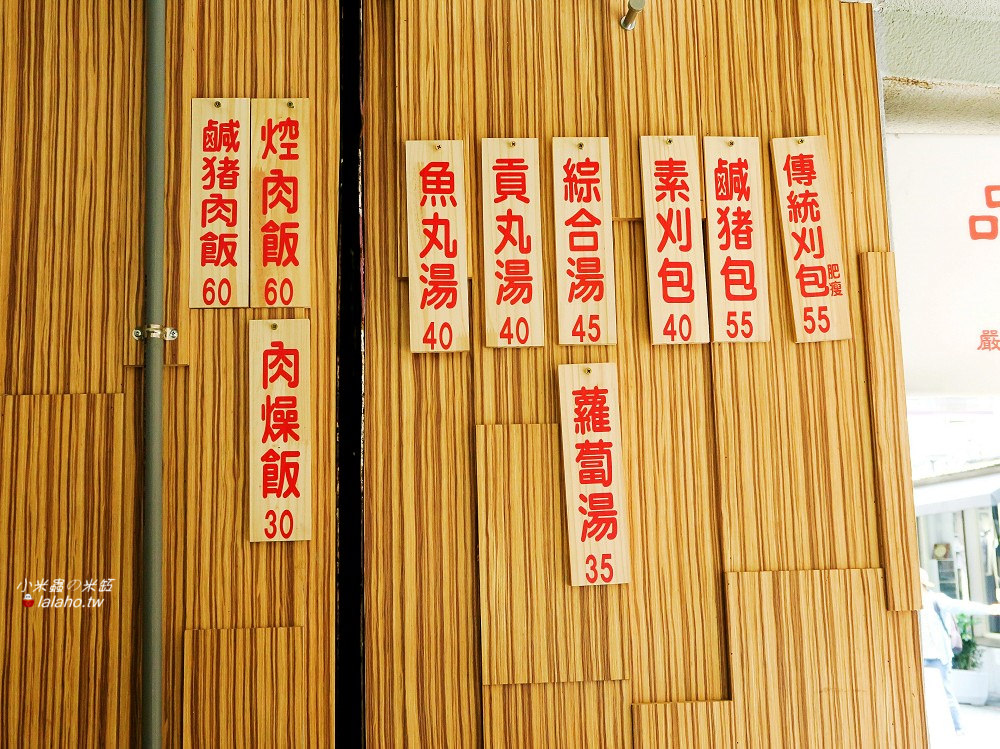 鹹豬肉飯 60
焢肉飯 60
肉燥飯 30
魚丸湯 40
貢丸湯 40
綜合湯 45
蘿蔔湯 35
素刈包 40
鹹豬包 55
傳統刈包 肥瘦 55
品
嚴
小米蟲の米缸
lalaho.tw